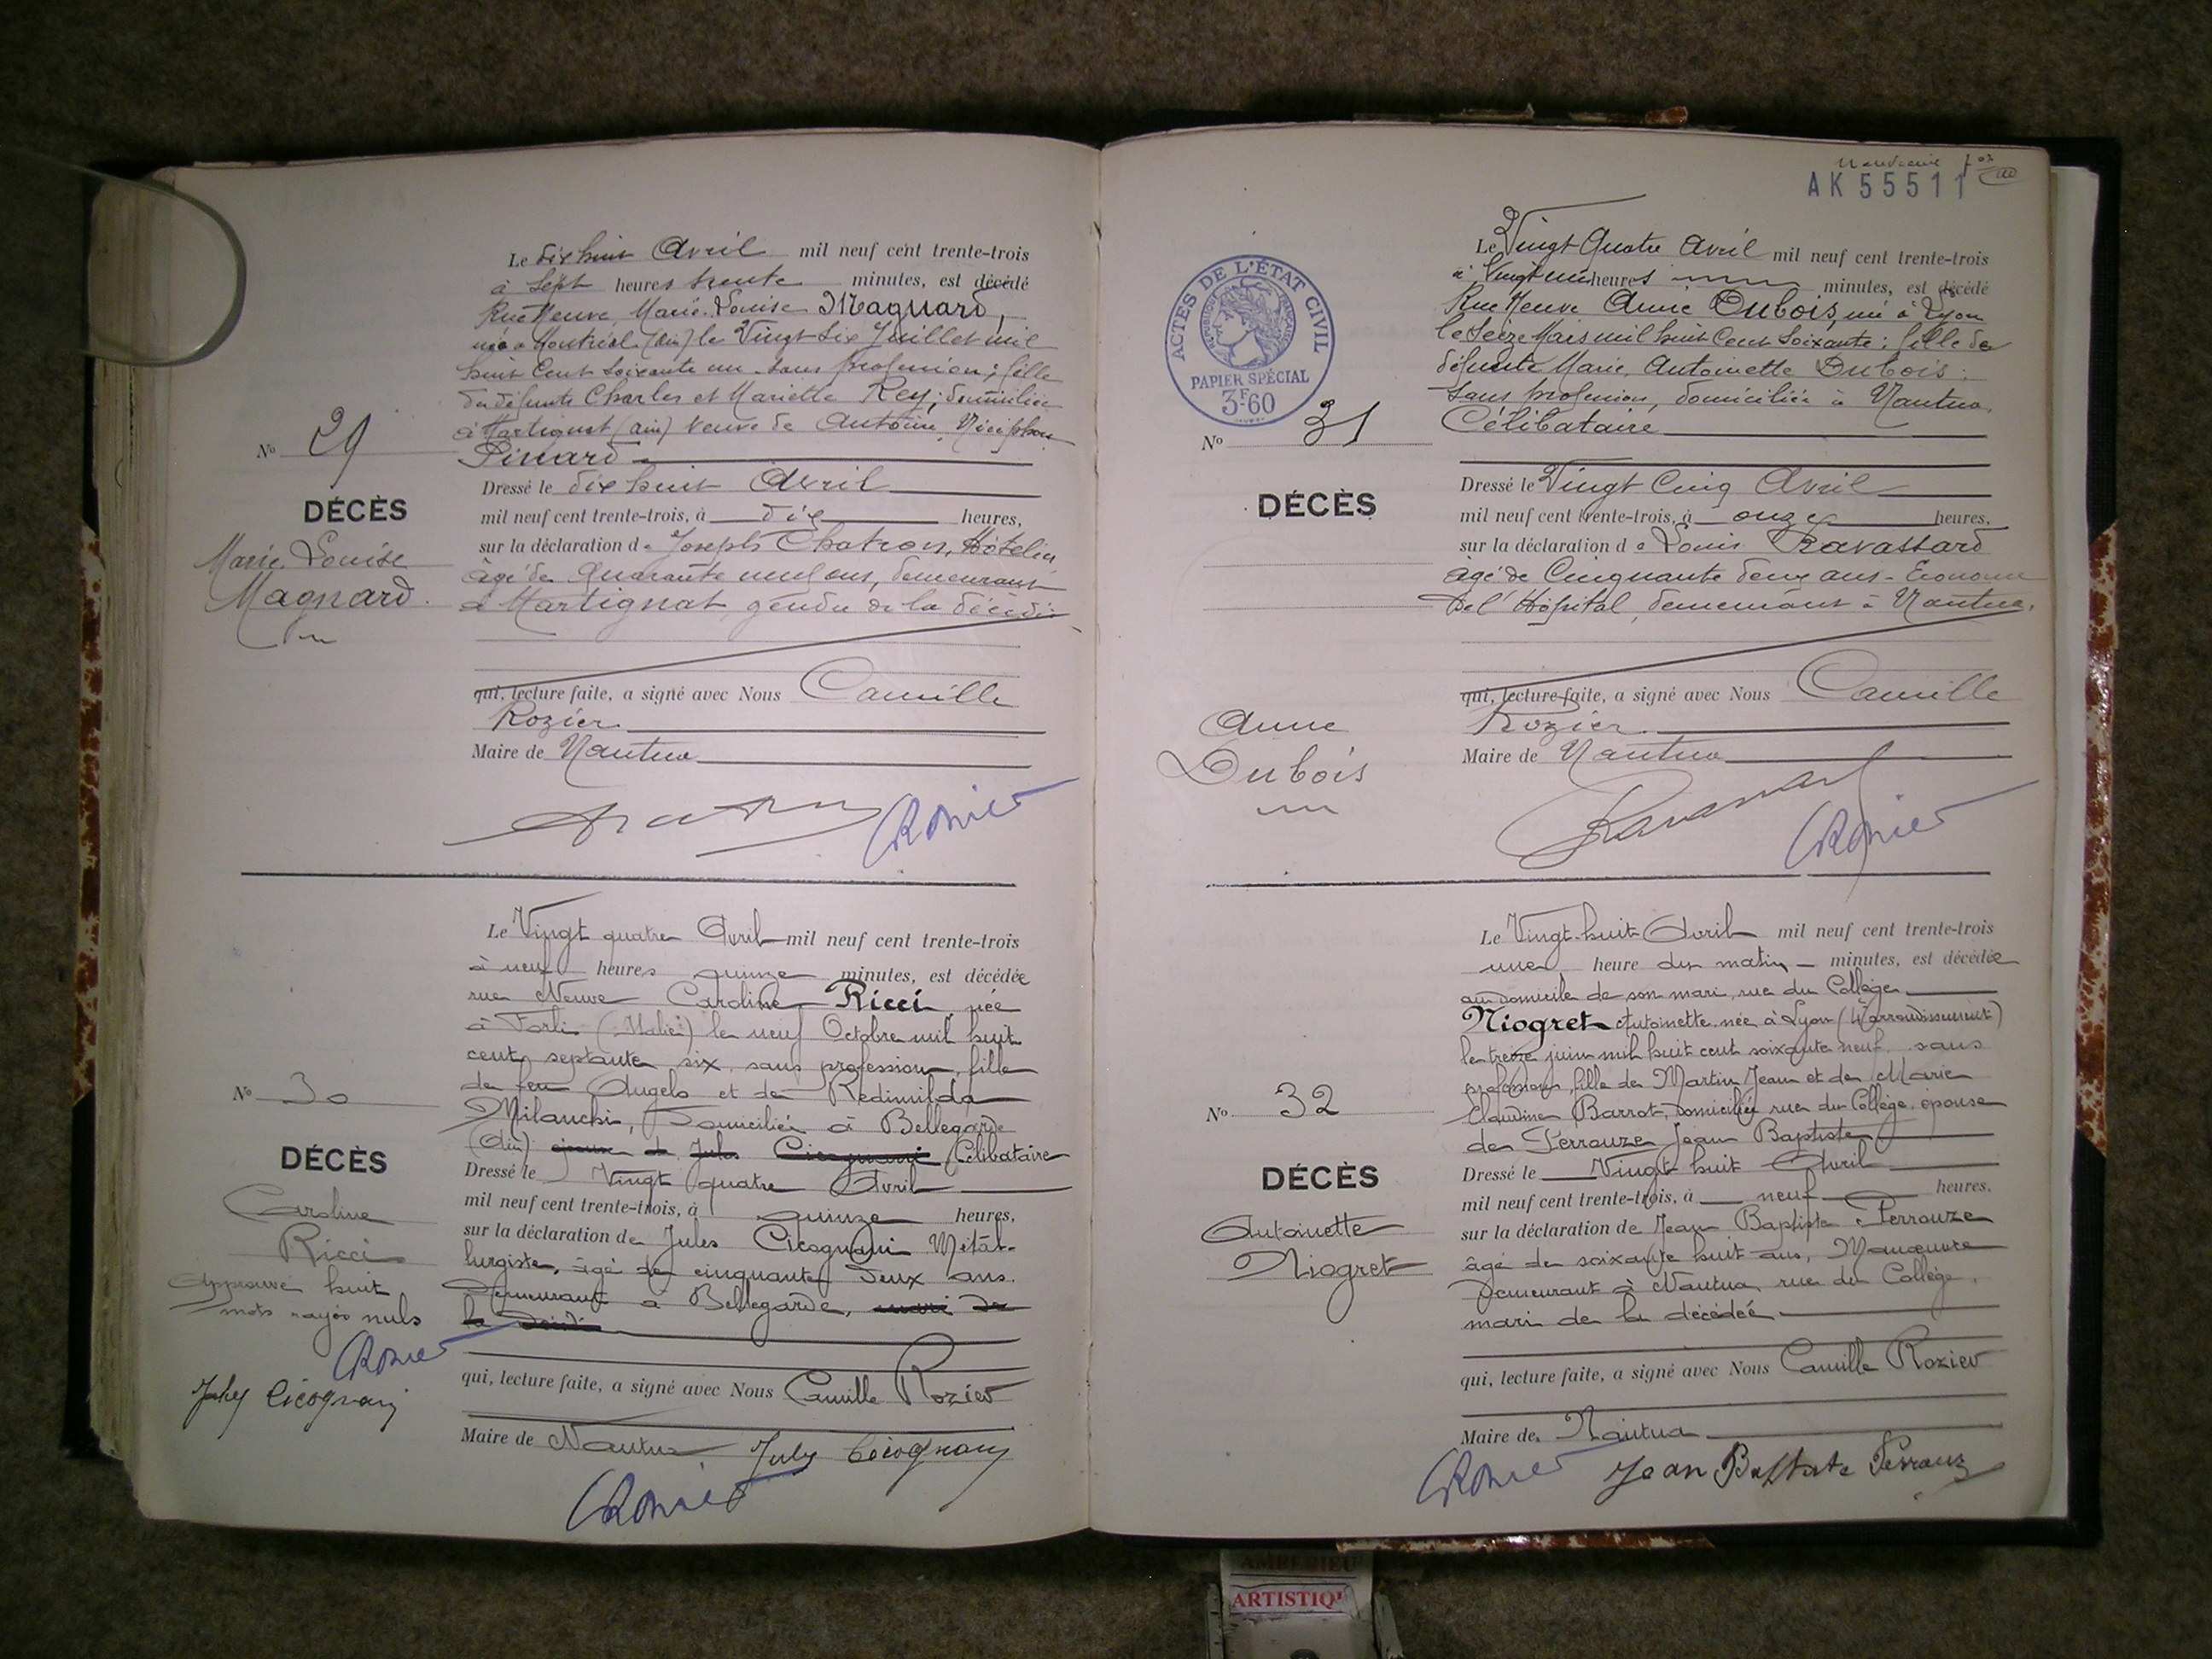 Le dix huit Avril mil neuf cent trente-trois
à Sept heures trente minutes, est décédé
Rue Neuve, Marie-Louise Magnard,
née à Montréal (ain) le Vingt Six Juillet mil
huit Cent Soixante un - sans profession; fille
de défunts Charles et Mariette Rey; domiciliée
à Martignat (ain) Veuve de Antoine,
Pinard
Nº 29
Dressé le dix huit Avril
DÉCÈS
mil neuf cent trente-trois, à dix heures,
sur la déclaration de Joseph Chatron, Hôtelier
Marie-Louise
Magnard
âgé de Quarante neuf ans, demeurant
à Martignat, gendre de la décédée
qui, lecture faite, a signé avec Nous Camille
Rozier
Maire de Nantua
Rozier
Le Vingt quatre Avril mil neuf cent trente-trois
à neuf heures quinze minutes, est décédée
rue Neuve Caroline Ricci, née
à Forli (Italie) le neuf Octobre mil huit
cent septante six, sans profession, fille
de feu Angelo et de Redimilda
Nº 30
Milanchi, Domiciliée à Bellegarde
(Ain) epouse de Jules Cicognani Célibataire
DÉCÈS
Dressé le Vingt quatre Avril
mil neuf cent trente-trois, à quinze heures,
Caroline
Ricci
sur la déclaration de Jules Cicognani Métal-
lurgiste, âgé de cinquante deux ans
Demeurant à Bellegarde, mari de
la
Approuvé huit
mots rayés nuls
Rozier
Jules Cicognani
qui, lecture faite, a signé avec Nous Camille Rozier
Maire de Nantua Jules Cicognani
Rozier
AK 55511
ACTES DE L'ÉTAT CIVIL
RÉPUBLIQUE FRANÇAISE
PAPIER SPÉCIAL
3F60
Le Vingt Quatre Avril mil neuf cent trente-trois
à Vingt une heures minutes, est décédé
Rue Neuve Anne Dubois, née à Lyon
le Seize Mars mil huit Cent Soixante; fille de
défunte Marie Antoinette Dubois.
Sans profession, domiciliée à Nantua,
Célibataire
Nº 31
DÉCÈS
Dressé le Vingt Cinq Avril
mil neuf cent trente-trois, à onze heures,
sur la déclaration de Louis Ravassard
âgé de Cinquante deux ans - Econome
de l'Hôpital, demeurant à Nantua,
qui, lecture faite, a signé avec Nous Camille
Rozier
Anne
Dubois
Maire de Nantua
Ravassard
Rozier
Le Vingt-huit Avril mil neuf cent trente-trois
une heure du matin minutes, est décédée
au domicile de son mari, rue du Collège
Niogret Antoinette née à Lyon (4e arrondissement)
le treize juin mil huit cent soixante neuf, sans
profession, fille de Martin Jean et de Marie
Claudine Barrot, domiciliée rue du Collège, epouse
de Perrouze Jean Baptiste
Nº 32
DÉCÈS
Dressé le Vingt huit Avril
mil neuf cent trente-trois, à neuf heures,
Antoinette
Niogret
sur la déclaration de Jean Baptiste Perrouze
âgé de soixante huit ans, Manœuvre
Demeurant à Nantua, rue du Collège,
mari de la décédée
qui, lecture faite, a signé avec Nous Camille Rozier
Maire de Nantua
Rozier Jean Baptiste Perrouz
ARTISTIQ